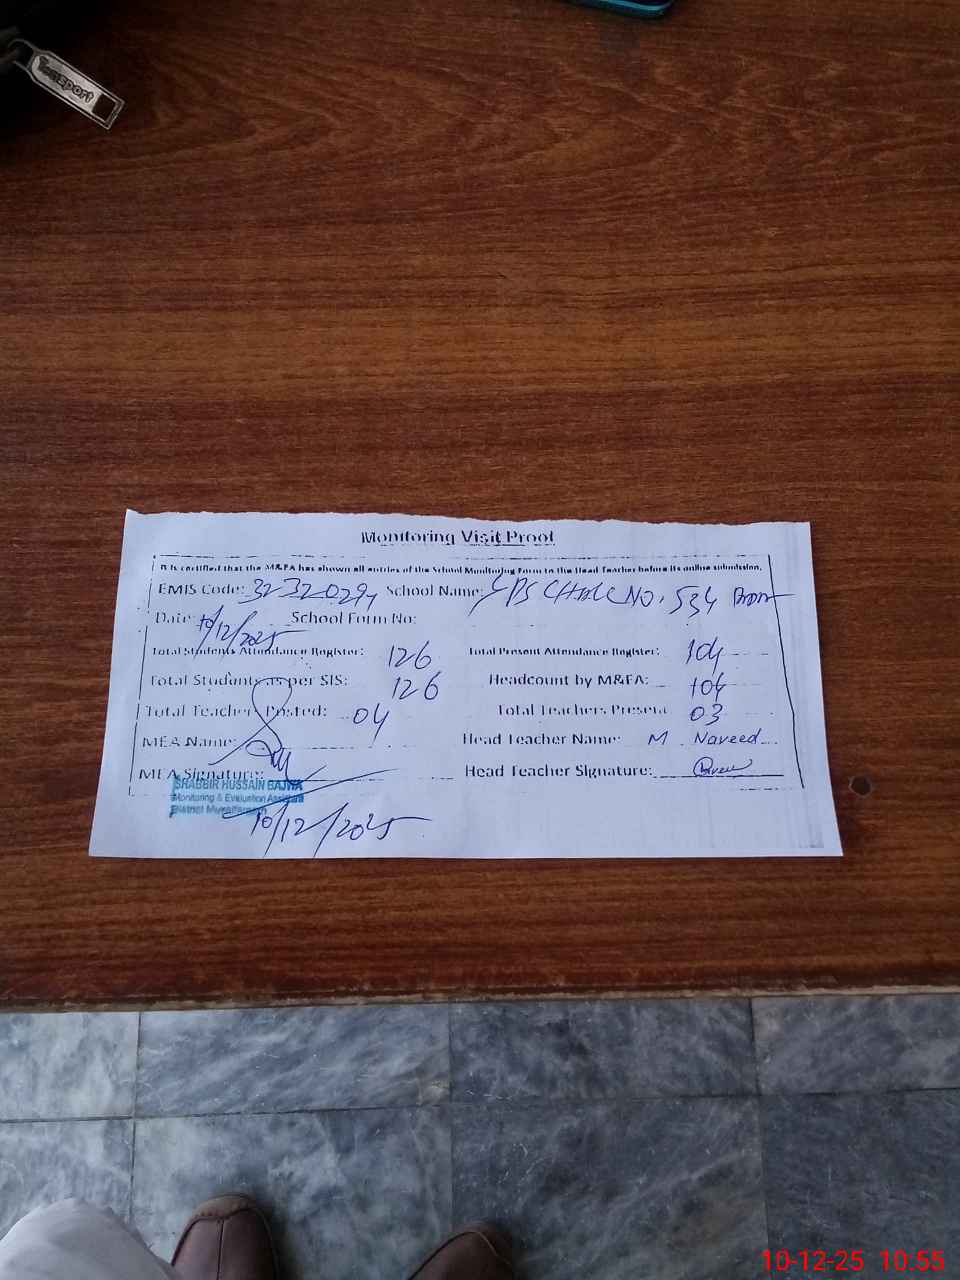 Transport
Monitoring Visit Proof
It is certified that the M&EA has shown all entries of the School Monitoring Form to the Head Teacher before its online submission.
EMIS Code: 32320294 School Name: GPS CHAK NO. 534
Date: 10/12/2025 School Form No:
Total Students Attendance Register: 126 Total Present Attendance Register: 104
Total Students as per SIS: 126 Headcount by M&EA: 104
Total Teachers Posted: 04 Total Teachers Present 03
MEA Name: Head Teacher Name: M Naveed
MEA Signature: Head Teacher Signature:
SHABBIR HUSSAIN BAJWA
Monitoring & Evaluation Assistant
District Muzaffargarh
10/12/2025
10-12-25 10.55